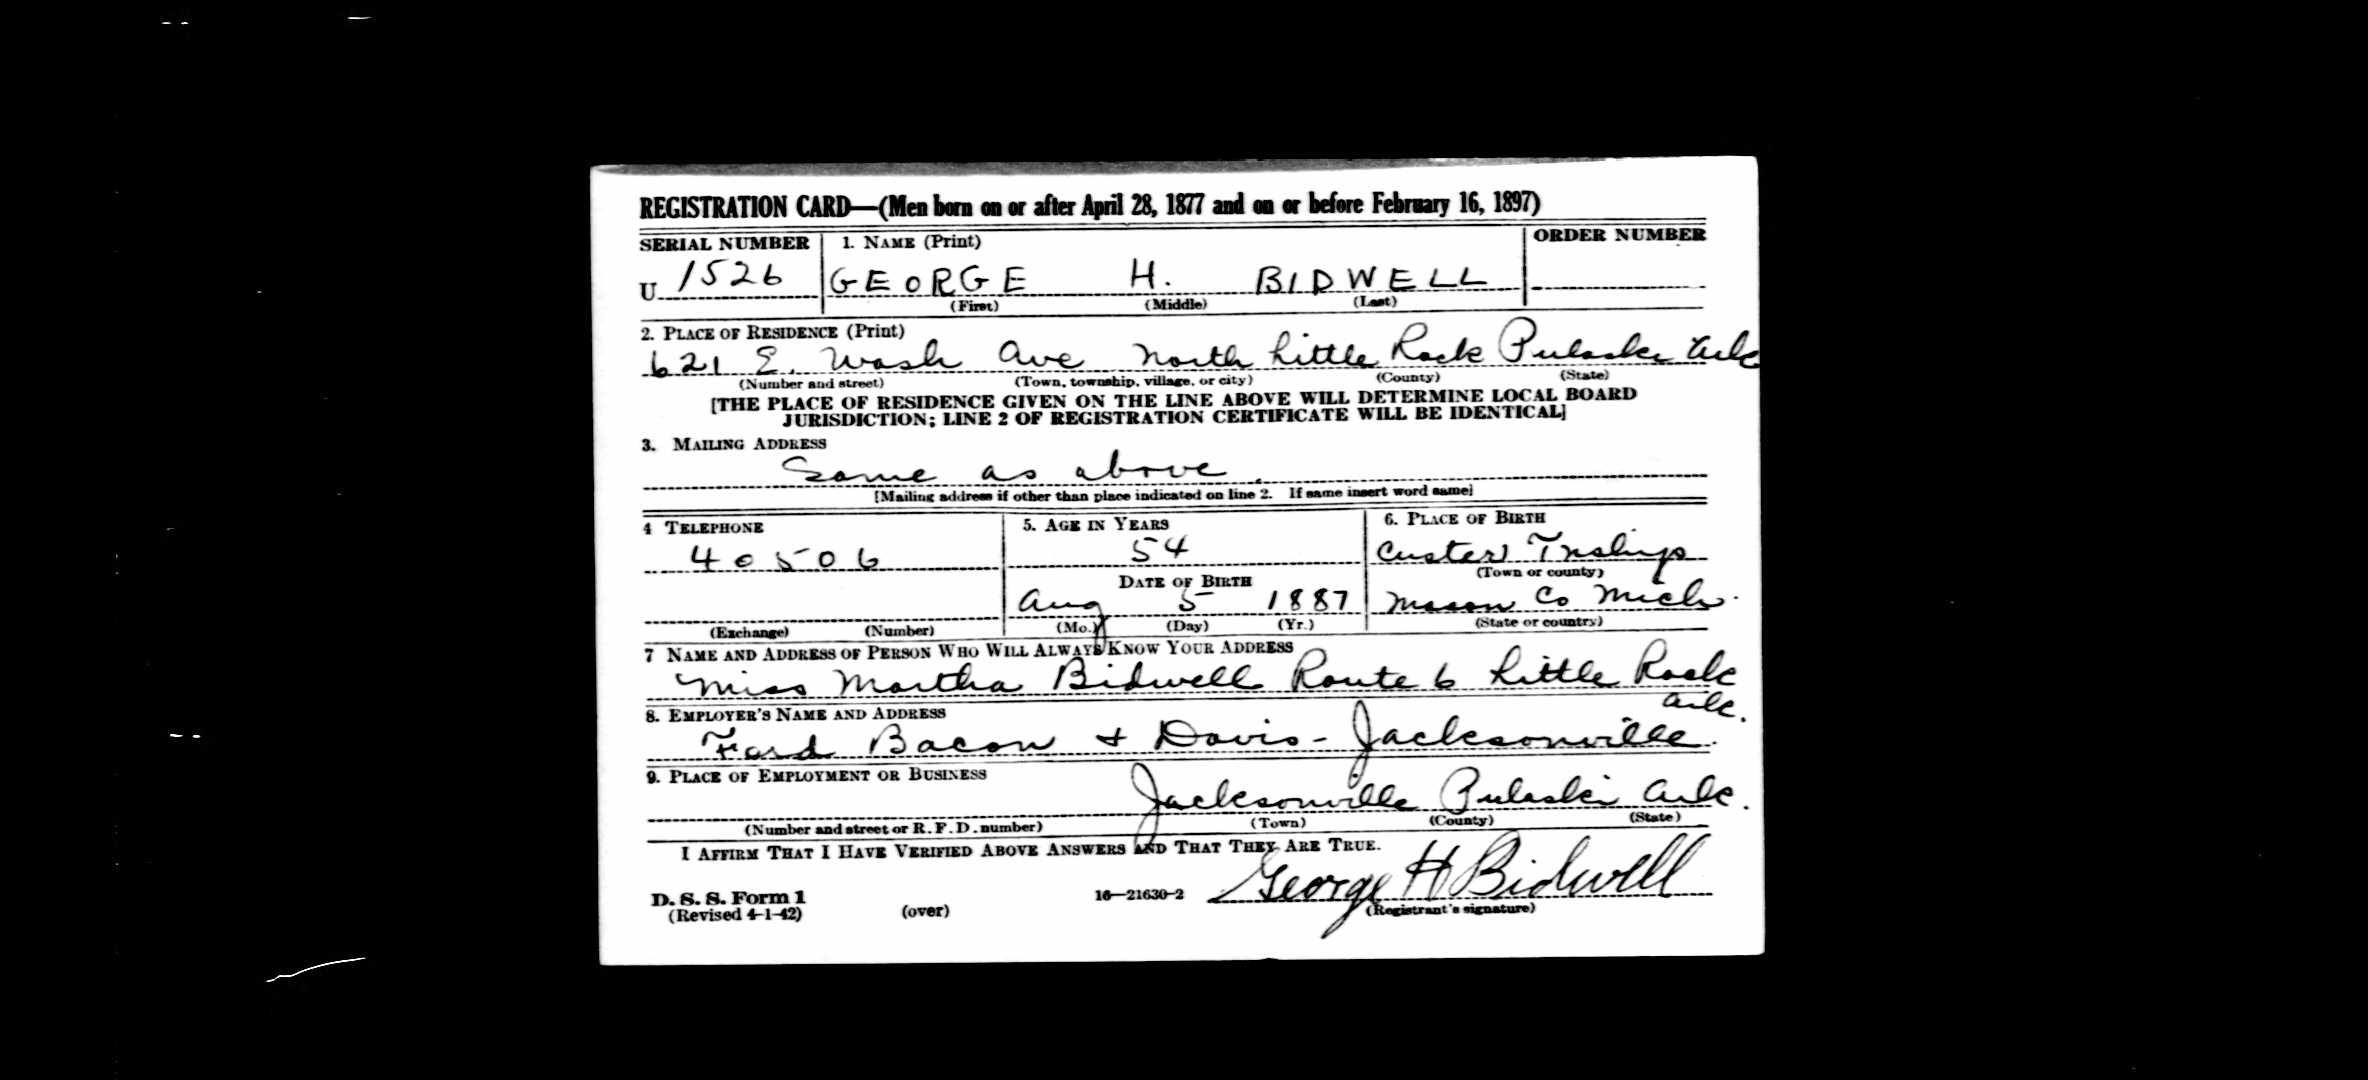 REGISTRATION CARD—(Men born on or after April 28, 1877 and on or before February 16, 1897)
SERIAL NUMBER 1. NAME (Print) ORDER NUMBER
U 1526 GEORGE H. BIDWELL
(First) (Middle) (Last)
2. PLACE OF RESIDENCE (Print)
621 E. Wash Ave North Little Rock Pulaski Ark
(Number and street) (Town, township, village, or city) (County) (State)
[THE PLACE OF RESIDENCE GIVEN ON THE LINE ABOVE WILL DETERMINE LOCAL BOARD
JURISDICTION; LINE 2 OF REGISTRATION CERTIFICATE WILL BE IDENTICAL]
3. MAILING ADDRESS
Same as above
[Mailing address if other than place indicated on line 2. If same insert word same]
4 TELEPHONE 5. AGE IN YEARS 6. PLACE OF BIRTH
40506 54 Custer Tnship
(Town or county)
DATE OF BIRTH
Aug 5 1887 Mason Co Mich.
(Exchange) (Number) (Mo.) (Day) (Yr.) (State or country)
7 NAME AND ADDRESS OF PERSON WHO WILL ALWAYS KNOW YOUR ADDRESS
Miss Martha Bidwell Route 6 Little Rock
Ark.
8. EMPLOYER'S NAME AND ADDRESS
Ford Bacon + Davis - Jacksonville.
9. PLACE OF EMPLOYMENT OR BUSINESS
Jacksonville Pulaski Ark.
(Number and street or R. F. D. number) (Town) (County) (State)
I AFFIRM THAT I HAVE VERIFIED ABOVE ANSWERS AND THAT THEY ARE TRUE.
George H Bidwell
D. S. S. Form 1 16—21630-2
(Revised 4-1-42) (over) (Registrant's signature)